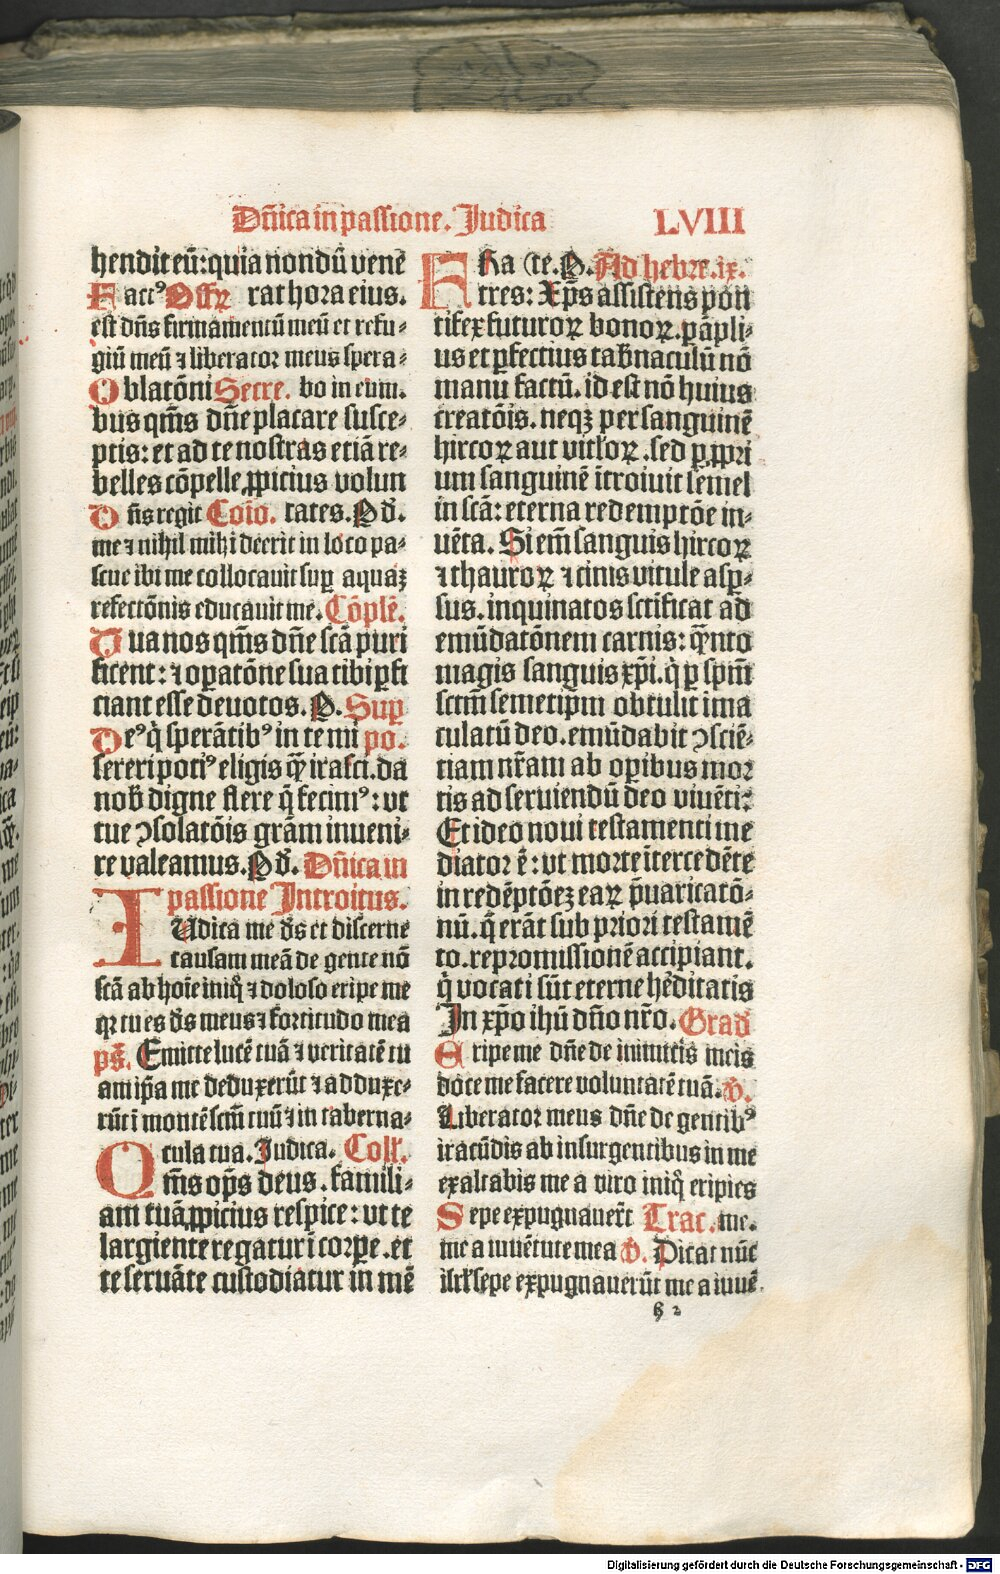 Dñica in passione. Judica
LVIII
hendit eū: quia nondū venē
Factꝰ Offr̄ rat hora eius.
est dñs firmamentū meū et refu-
giū meū ⁊ liberator meus spera-
Oblatōni Secre. bo in eum.
bus qm̄s dñe placare susce-
ptis: et ad te nostras etiā re-
belles cōpelle ꝓpicius volun
Dñs regit Coīo. tates. P d̄.
me ⁊ nihil mihi deerit in loco pa-
scue ibi me collocauit suꝑ aquaꝫ
refectōnis educauit me. Cōple.
Tua nos qm̄s dñe scā puri
ficent: ⁊ oꝑatōne sua tibi ꝑfi
ciant esse deuotos. P. Suꝑ
Deꝰ q̇ sperātibꝰ in te mi po.
sereri potiꝰ eligis qꝫ irasci. da
nob̄ digne flere q̄ fecimꝰ: vt
tue ↄsolatōis grām inueni-
re valeamus. P d̄. Dñica in
passione Introitus.
IUdica me ds̄ et discerne
causam meā de gente nō
scā ab hoīe iniq̇ ⁊ doloso eripe me
qꝛ tu es ds̄ meus ⁊ fortitudo mea
ps̄. Emitte lucē tuā ⁊ veritatē tu
am ip̄a me deduxerūt ⁊ adduxe-
rūt ī montē scm̄ tuū ⁊ in taberna-
Qcula tua. Judica. Coll̄.
m̄s op̄s deus. famili-
am tuā ꝓpicius respice: vt te
largiente regatur ī corꝑe. et
te seruāte custodiatur in mē
FRa (te. P. Ad hebre. ix.
tres: Xp̄s assistens pon
tifex futuroꝝ bonoꝝ. p āpli-
us et ꝑfectius tab̄naculū nō
manu factū. id est nō huius
creatōis. neqꝫ per sanguinē
hircoꝝ aut vitl̄oꝝ. sed ꝑ ꝓpri
um sanguinē ītroiuit semel
in scā: eterna redemptōe in-
uēta. Si em̄ sanguis hircoꝝ
⁊ thauroꝝ ⁊ cinis vitule asꝑ-
sus. inquinatos sctificat ad
emūdatōnem carnis: q̄nto
magis sanguis xp̄i. q̇ ꝑ spm̄
sctm̄ semetip̄m obtulit ima
culatū deo. emūdabit ↄsciē-
tiam nr̄am ab oꝑibus mor
tis ad seruiendū deo viuēti:
Et ideo noui testamenti me
diator ē: vt morte ītercedēte
in redēptōeꝫ eaꝝ p̄uaricatō-
nū. q̄ erāt sub priori testamē
to. repromissionē accipiant.
q̇ vocati sūt eterne he̓ditatis
In xp̄o ihū dño nr̄o. Grad̄
Eripe me dñe de inimicis meis
doce me facere voluntatē tuā. V̄.
Liberator meus dñe de gentibꝰ
iracūdis ab insurgentibus in me
exaltabis me a viro iniq̇ eripies
Sepe expugnauer̄t Trac. me.
me a iuuētute mea V̄. Dicat nūc
isrl̄ sepe expugnauerūt me a iuuē
h 2
Digitalisierung gefördert durch die Deutsche Forschungsgemeinschaft - DFG